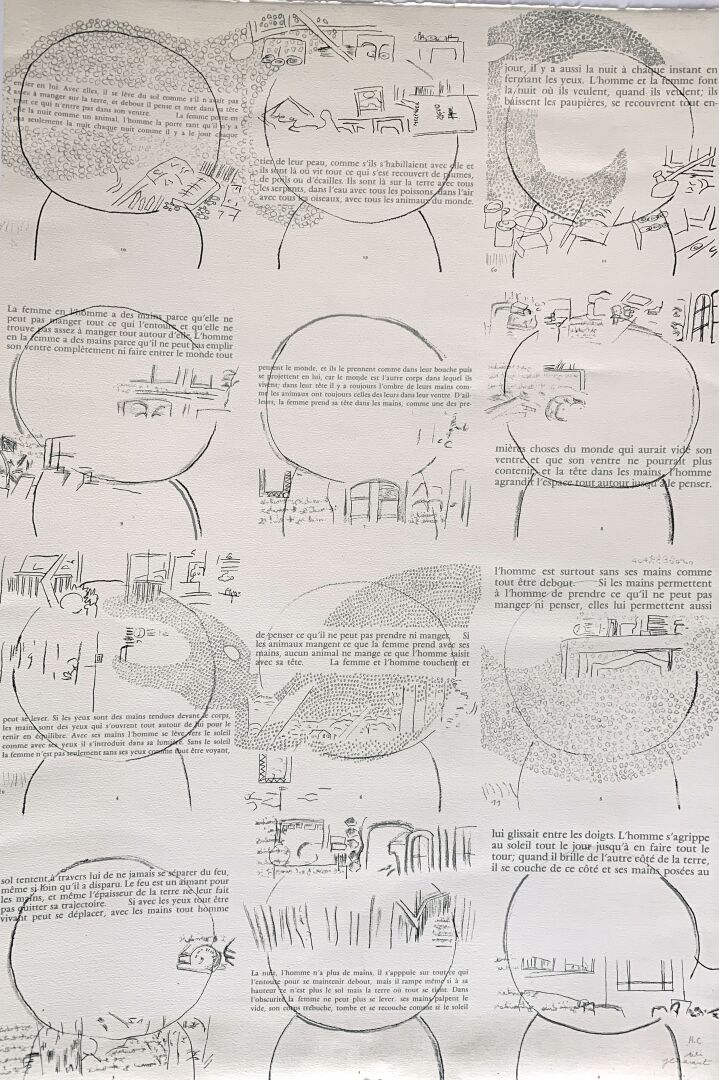 entrer en lui. Avec elles, il se lève du sol comme s'il n'avait pas
assez à manger sur la terre, et debout il pense et met dans sa tête
tout ce qui n'entre pas dans son ventre. La femme porte en
elle la nuit comme un animal, l'homme la porte tant qu'il n'y a
pas seulement la nuit chaque nuit comme il y a le jour chaque
10
tier de leur peau, comme s'ils s'habillaient avec elle et
ils sont là où vit tout ce qui s'est recouvert de plumes,
de poils ou d'écailles. Ils sont là sur la terre avec tous
les serpents, dans l'eau avec tous les poissons, dans l'air
avec tous les oiseaux, avec tous les animaux du monde.
jour, il y a aussi la nuit à chaque instant en
fermant les yeux. L'homme et la femme font
la nuit où ils veulent, quand ils veulent; ils
baissent les paupières, se recouvrent tout en-
La femme en l'homme a des mains parce qu'elle ne
peut pas manger tout ce qui l'entoure et qu'elle ne
trouve pas assez à manger tout autour d'elle. L'homme
en la femme a des mains parce qu'il ne peut pas emplir
son ventre complètement ni faire entrer le monde tout
pensent le monde, et ils le prennent comme dans leur bouche puis
se projettent en lui, car le monde est l'autre corps dans lequel ils
vivent; dans leur tête il y a toujours l'ombre de leurs mains com-
me les animaux ont toujours celles des leurs dans leur ventre. D'ail-
leurs, la femme prend sa tête dans les mains, comme une des pre-
mières choses du monde qui aurait vidé son
ventre et que son ventre ne pourrait plus
contenir, et la tête dans les mains, l'homme
agrandit l'espace tout autour jusqu'à le penser.
peut se lever. Si les yeux sont des mains tendues devant le corps,
les mains sont des yeux qui s'ouvrent tout autour de lui pour le
tenir en équilibre. Avec ses mains l'homme se lève vers le soleil
comme avec ses yeux il s'introduit dans sa lumière. Sans le soleil
la femme n'est pas seulement sans ses yeux comme tout être voyant,
de penser ce qu'il ne peut pas prendre ni manger. Si
les animaux mangent ce que la femme prend avec ses
mains, aucun animal ne mange ce que l'homme saisit
avec sa tête. La femme et l'homme touchent et
l'homme est surtout sans ses mains comme
tout être debout. Si les mains permettent
à l'homme de prendre ce qu'il ne peut pas
manger ni penser, elles lui permettent aussi
sol tentent à travers lui de ne jamais se séparer du feu,
même si loin qu'il a disparu. Le feu est un aimant pour
les mains, et même l'épaisseur de la terre ne leur fait
pas quitter sa trajectoire. Si avec les yeux tout être
vivant peut se déplacer, avec les mains tout homme
La nuit, l'homme n'a plus de mains, il s'appuie sur tout ce qui
l'entoure pour se maintenir debout, mais il rampe même si à sa
hauteur ce n'est plus le sol mais la terre où tout se tient. Dans
l'obscurité la femme ne peut plus se lever. ses mains palpent le
vide, son corps trébuche, tombe et se recouche comme si le soleil
lui glissait entre les doigts. L'homme s'agrippe
au soleil tout le jour jusqu'à en faire tout le
tour; quand il brille de l'autre côté de la terre,
il se couche de ce côté et ses mains posées au
H.C